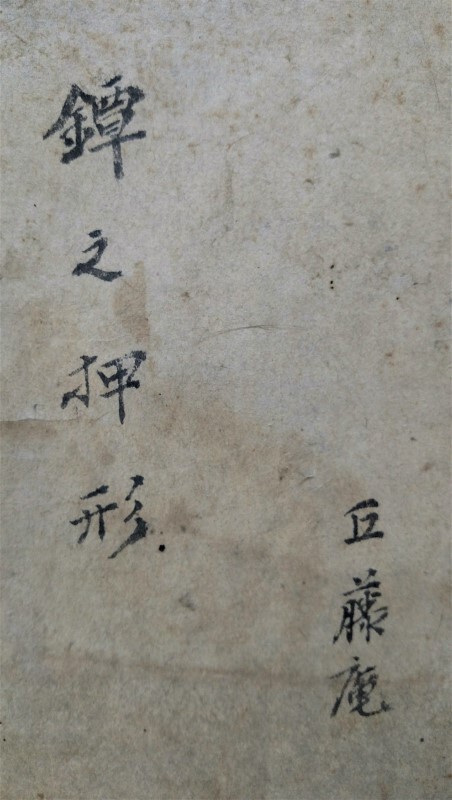 鐔之押形
藤庵